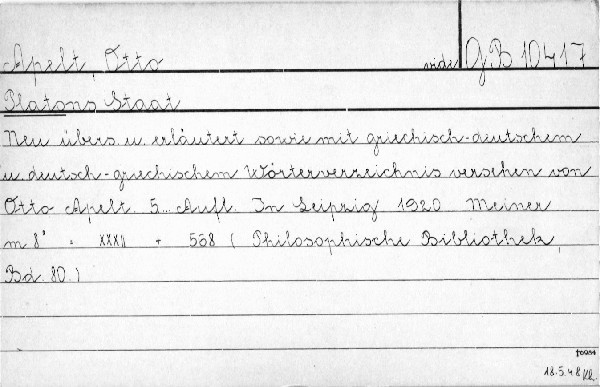 Apelt, Otto vide GB 10417
Platons Staat
Neu übers. u. erläutert sowie mit griechisch-deutschem
u. deutsch-griechischem Wörterverzeichnis versehen von
Otto Apelt. 5. Aufl. In Leipzig 1920 Meiner
m 8° = XXXII + 568 ( Philosophische Bibliothek,
Bd. 80.)
18.5.48